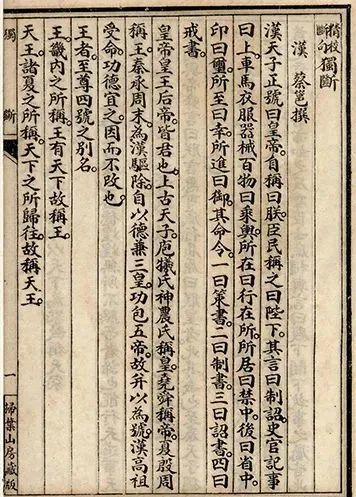 精校斷句 獨斷
漢 蔡邕撰
漢天子正號曰皇帝。自稱曰朕。臣民稱之曰陛下。其言曰制詔。史官記事
曰上。車馬衣服器械百物曰乘輿。所在曰行在所。所居曰禁中。後曰省中。
印曰璽。所至曰幸。所進曰御。其命令。一曰策書。二曰制書。三曰詔書。四曰
戒書。
皇帝皇王后帝。皆君也。上古天子。庖犧氏神農氏稱皇。堯舜稱帝。夏殷周
稱王。秦承周末。為漢驅除。自以德兼三皇。功包五帝。故并以為號。漢高祖
受命。功德宜之。因而不改也。
王者。至尊四號之別名。
王。畿內之所稱。王有天下故稱王。
天王。諸夏之所稱。天下之所歸往。故稱天王。
獨斷 一 掃葉山房藏版